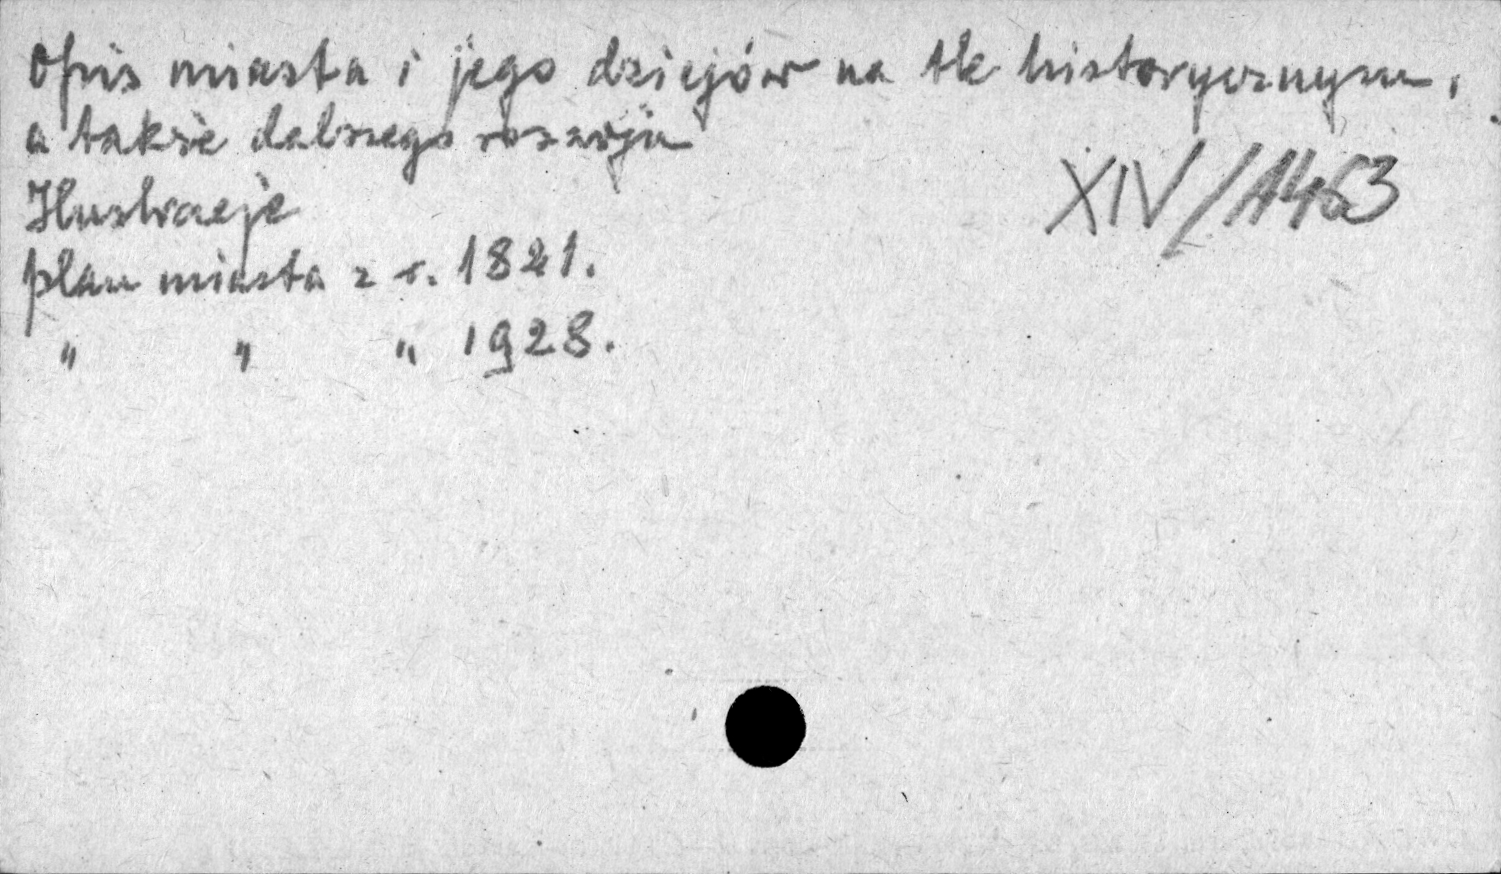 Opis miasta i jego dziejów na tle historycznym,
a także dalszego rozwoju
XIV/1463
Ilustracje
plan miasta z r. 1821.
" " " 1928.